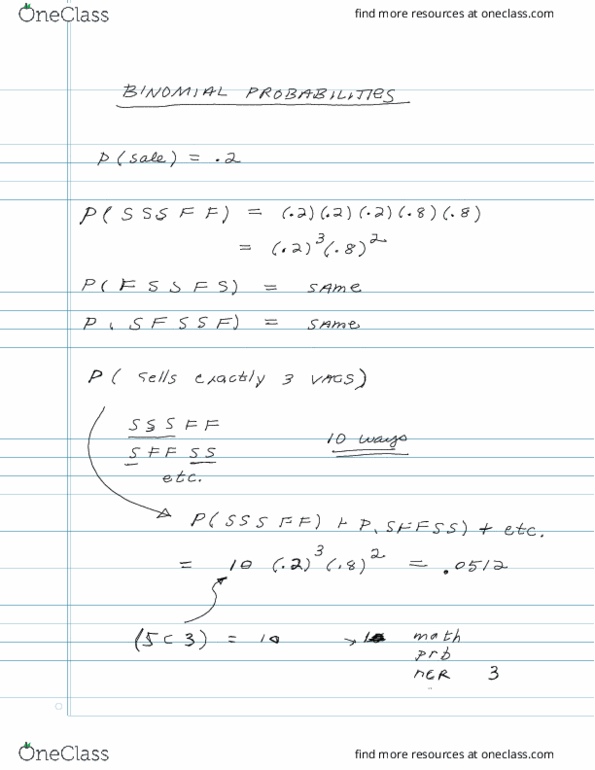 OneClass
find more resources at oneclass.com
BINOMIAL PROBABILITIES
P(sale) = .2
P(SSSFF) = (.2)(.2)(.2)(.8)(.8)
= (.2)³(.8)²
P(FSSFS) = SAME
P(SFSSF) = SAME
P( sells exactly 3 VACS)
SSSFF
10 ways
SFFSS
etc.
P(SSSFF) + P(SFFSS) + etc.
= 10 (.2)³(.8)² = .0512
(5C3) = 10 → math
prb
nCR 3
OneClass
find more resources at oneclass.com